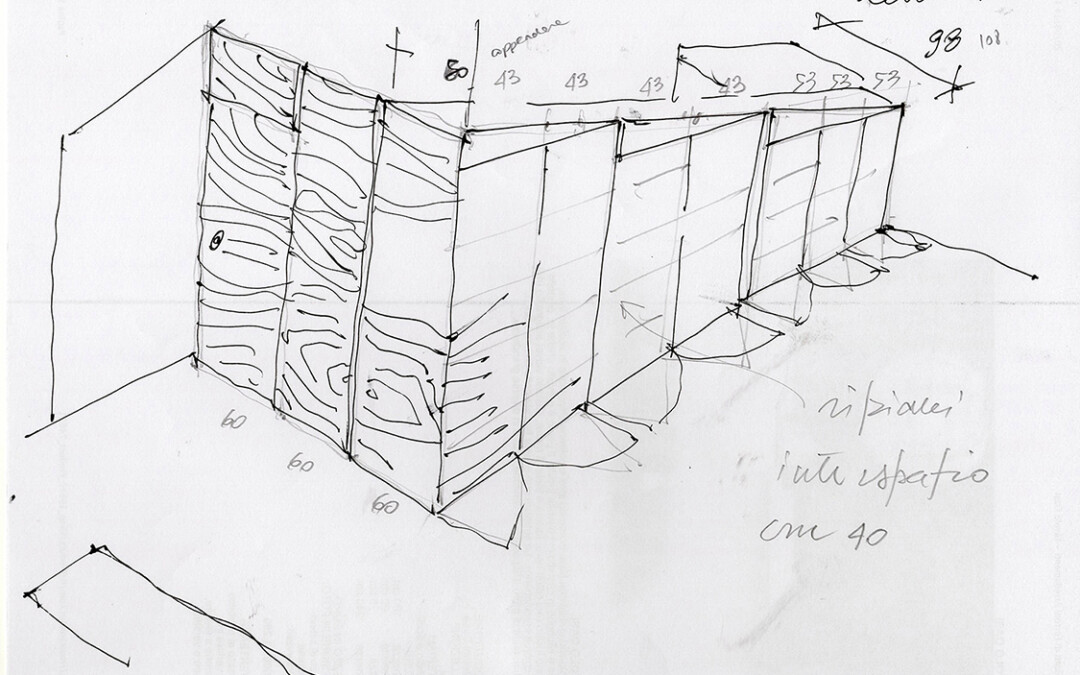 appendere
98 108
80 43 43 43 43 53 53 53
60
60
60
ripiani
interspazio
cm 40